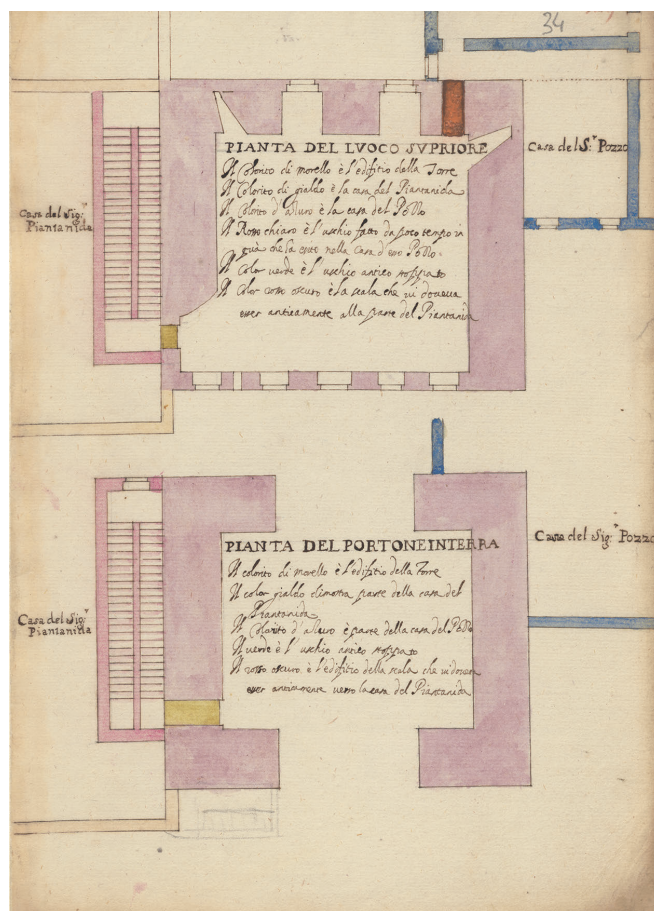 34
PIANTA DEL LVOCO SVPRIORE
Il Colorito di morello è l'edifitio della Torre
Il Colorito di gialdo è la casa del Piantanida
Il Colorito d'azuro è la casa del Pozzo
Il Rosso chiaro è l'uschio fatto da poco tempo in
quà che fa esito nella Casa d'esso Pozzo.
Il Color verde è l'uschio antico stoppato
Il Color rosso oscuro è la scala che vi doveva
esser anticamente alla parte del Piantanida
Casa del Sig.r
Piantanida
Casa del S.r Pozzo
PIANTA DEL PORTONE IN TERRA
Il colorito di morello è l'edifitio della Torre
Il color gialdo dimostra parte della casa del
Piantanida
Il Colorito d'azuro è parte della casa del Pozzo
Il verde è l'uschio antico stoppato
Il rosso oscuro è l'edifitio della scala che vi doveva
esser anticamente verso la casa del Piantanida
Casa del Sig.r
Piantanida
Casa del Sig.r Pozzo